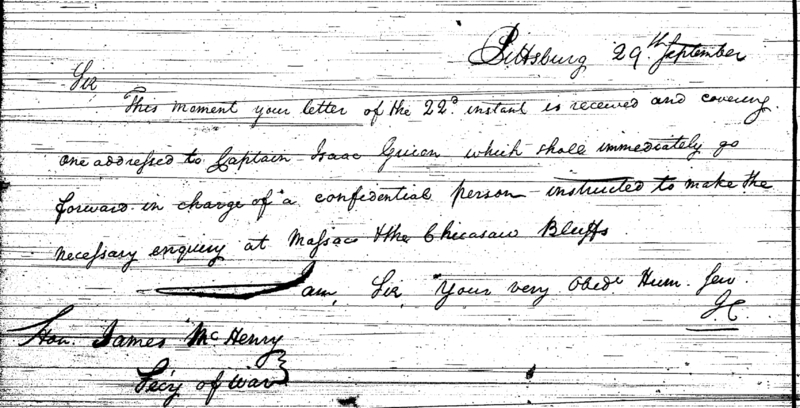 Pittsburg 29th September
Sir
This moment your letter of the 22d. instant is received and covering
one addressed to Captain Isaac Guion which shall immediately go
forward in charge of a confidential person instructed to make the
necessary enquiry at Massac & the Chicasaw Bluffs
I am, Sir, Your very Obedt Hum. Serv.
Hon. James McHenry
Sec'y of War